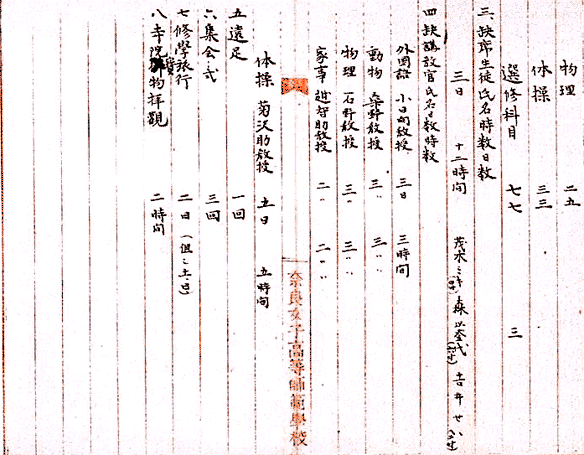 物理 二五
体操 三三
選修科目 七七 三
三、欠席生徒氏名時数日数
三日 十二時間
四 欠講教官氏名日数時数
外国語 小日向教授 三日 三時間
動物 桑野教授 三〃 三〃〃
物理 石野教授 三〃 三〃〃
家事 越智助教授 二〃 二〃〃
奈良女子高等師範學校
体操 菊沢助教授 五日 五時間
五 遠足 一回
六 集会、式 三回
七 修學旅行 二日
八 寺院 物拝観 二時間